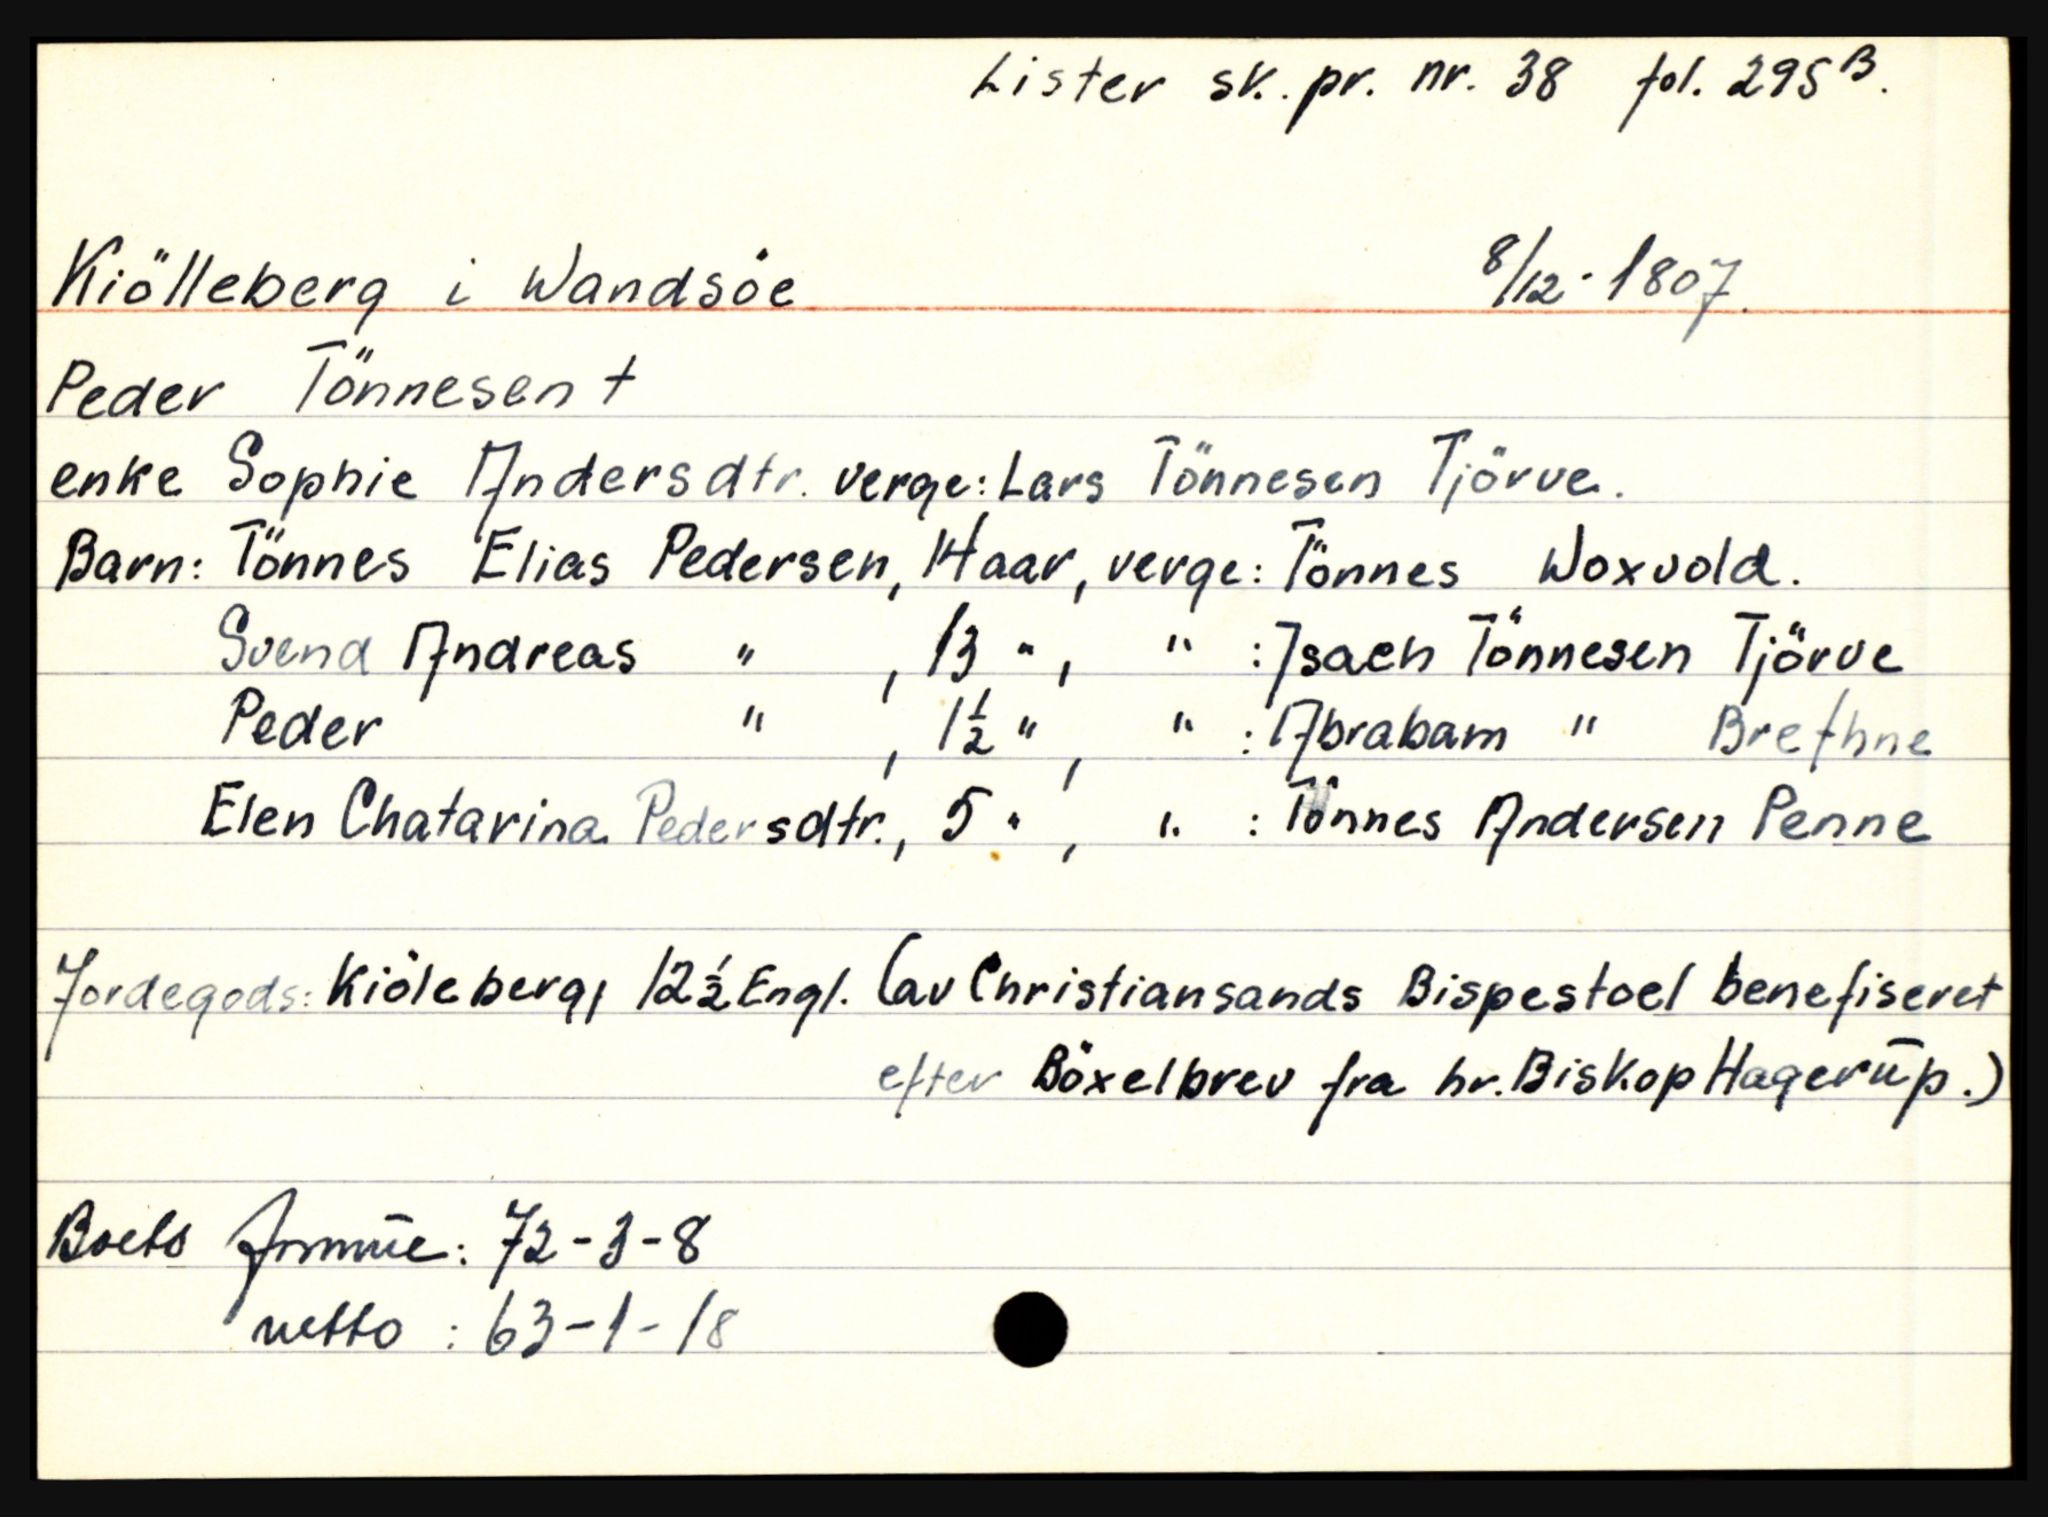 Lister sk. pr. nr. 38 fol. 295 B.
Kiölleberg i Wandsöe 8/12-1807.
Peder Tönnesen †
enke Sophie Andersdtr. verge: Lars Tönnesen Tjörve.
Barn: Tönnes Elias Pedersen, 14 aar, verge: Tönnes Woxvold.
Svend Andreas " , 13 ", " : Isach Tönnesen Tjörve
Peder " , 1½ ", " : Abraham " Brethne
Elen Chatarina Pedersdtr., 5 ", " : Tönnes Andersen Penne
Jordegods: Kiöleberg, 12½ Engl. (av Christiansands Bispestoel benefiseret
efter Böxelbrev fra hr. Biskop Hagerūp.)
Boets formūe: 72-3-8
netto : 63-1-18